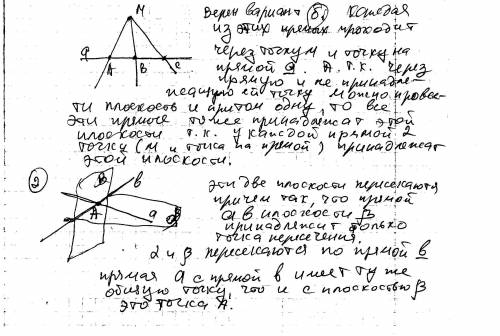 M
Верен вариант (б). Каждая
из этих прямых проходит
через точку M и точку на
прямой a. А т.к. через
a A B C
прямую и не принадле-
жащую ей точку можно провес-
ти плоскость и притом одну, то все
эти прямые тоже принадлежат этой
плоскости т.к. у каждой прямой 2
точки (M и точка на прямой) принадлежат
этой плоскости.
2
β b
A a α
эти две плоскости пересекаются
причем так, что прямой
a в плоскости β
принадлежит только
точка пересечения.
α и β пересекаются по прямой b
прямая a с прямой b имеет ту же
общую точку, что и с плоскостью β
это точка A.